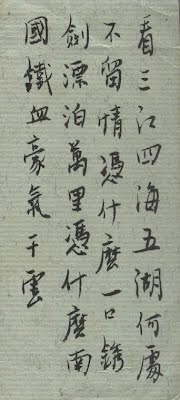 看三江四海五湖何處
不留情憑什麼一口鏽
劍漂泊萬里憑什麼南
國鐵血豪氣干雲